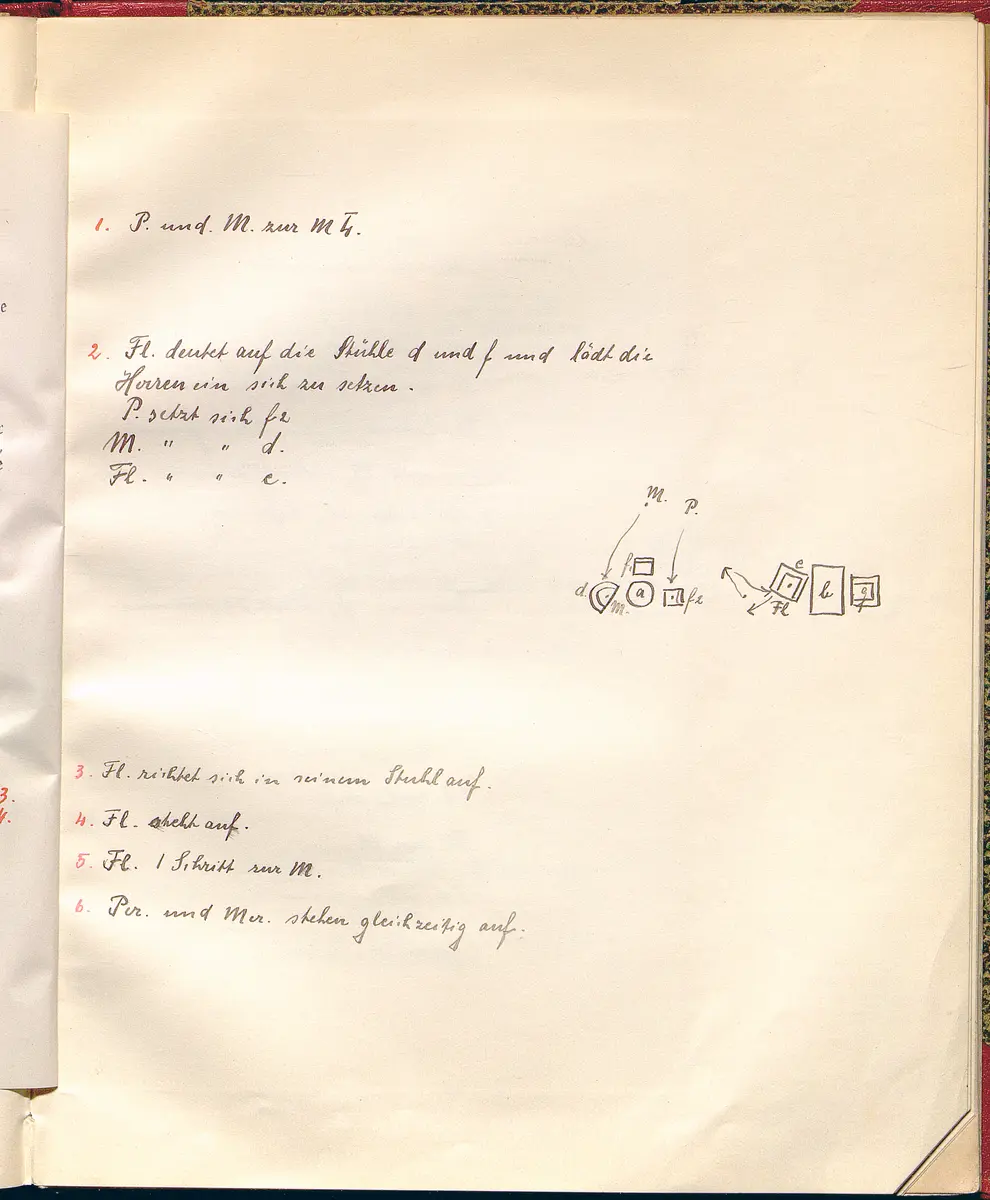 1. P. und. M. zur M
2. Fl. deutet auf die Stühle d und f und lädt die
Herren ein sich zu setzen.
P. setzt sich f2
M. " " d.
Fl. " " e.
M. P.
f1 e
d. a f2 b g
M. Fl
3. Fl. richtet sich in seinem Stuhl auf.
3.
4.
4. Fl. steht auf.
5. Fl. 1 Schritt zur M.
6. Per. und Mer. stehen gleichzeitig auf.